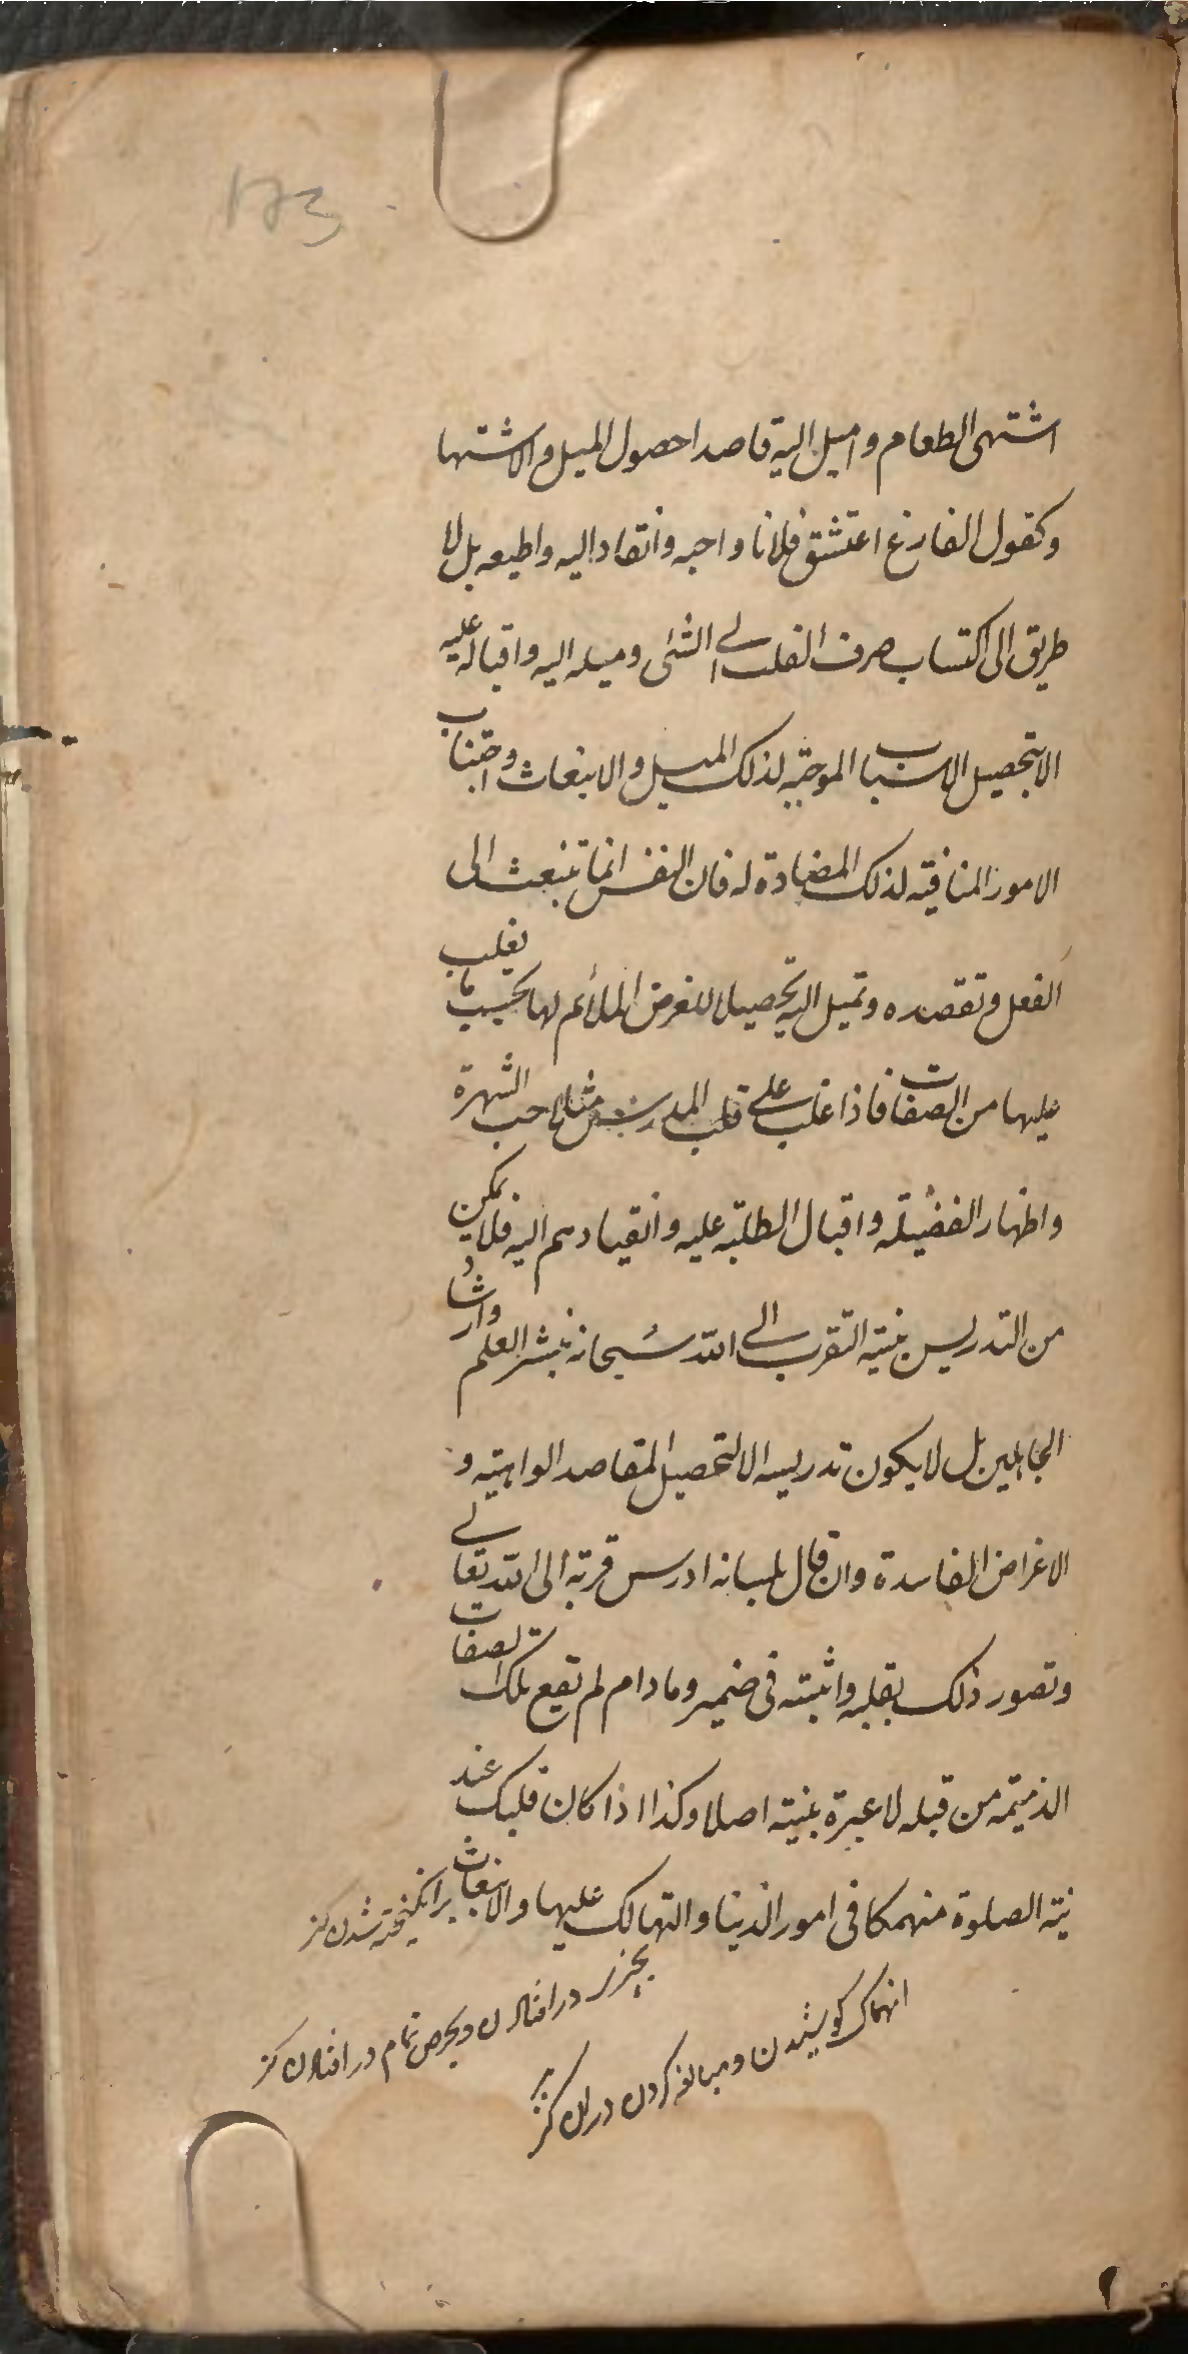 173
اشتهى الطعام واميل اليه قاصدا حصول الميل والاشتها
وكقول الفارغ اعتشق فلانا واحبه وانقاد اليه واطيعه بل لا
طريق الى اكتساب صرف القلب الى الشئ وميله اليه واقباله عليه
الا بتحصيل الاسباب الموجبة لذلك الميل والانبعاث واجتناب
الامور المنافية لذلك المضادة له فان النفس انما تنبعث الى
الفعل وتقصده وتميل اليه تحصيلا للغرض الملائم لها بحسب ما يغلب
عليها من الصفات فاذا غلب على قلب المدرس مثلا حب الشهرة
واظهار الفضيلة واقبال الطلبة عليه وانقيادهم اليه فلا يمكن
من التدريس بنية التقرب الى الله سبحانه بنشر العلم وارشاد
الجاهلين بل لا يكون تدريسه الا لتحصيل المقاصد الواهية و
الاغراض الفاسدة وان قال بلسانه ادرس قربة الى الله تعالى
وتصور ذلك بقلبه واثبته فى ضميره وما دام لم تقع تلك الصفات
الذميمة من قبله لا عبرة بنيته اصلا وكذا اذا كان قلبك عند
نية الصلوة منهمكا فى امور الدنيا والتهالك عليها والانبعاث
برانگیخته شدن کنز
بچیزی در افتادن وبحرص تمام در افتادن کنز
انهماک کوشیدن ومبالغه کردن در کنز